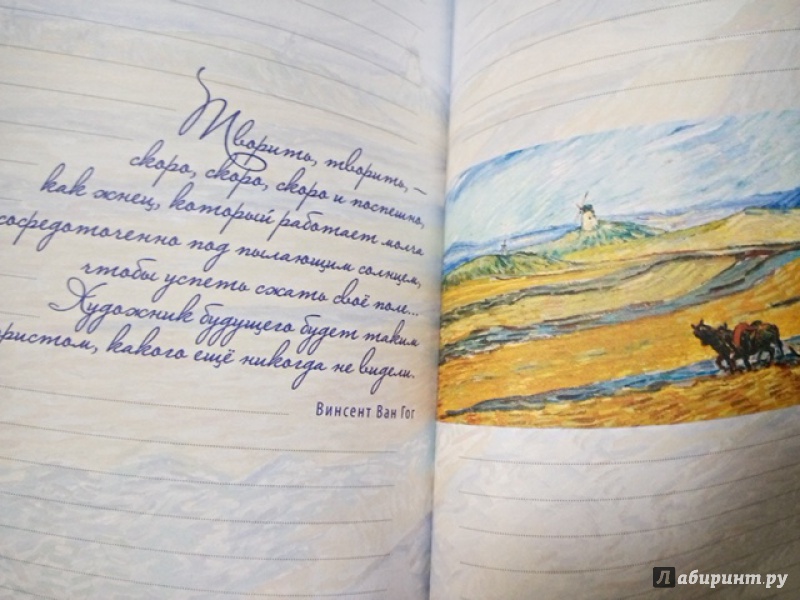 Творить, творить, –
скоро, скоро, скоро и поспешно,
как жнец, который работает молча
сосредоточенно под пылающим солнцем,
чтобы успеть сжать своё поле...
Художник будущего будет таким
ористом, какого ещё никогда не видели.
Винсент Ван Гог
Лабиринт.ру